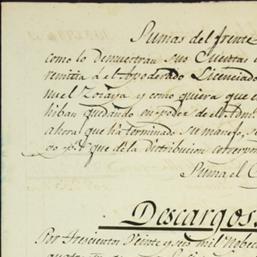 Sumas del frente
como lo demuestran sus Cuentas
remitia á el Apoderado Licenciado
nuel Zozaya y como quiera que e
hiban quedando en poder de
ahora que há terminado su manejo, s
go p.r que de la Distribucion
Suma el C
Descargos
Por trescientos veinte y seis mil Nobec